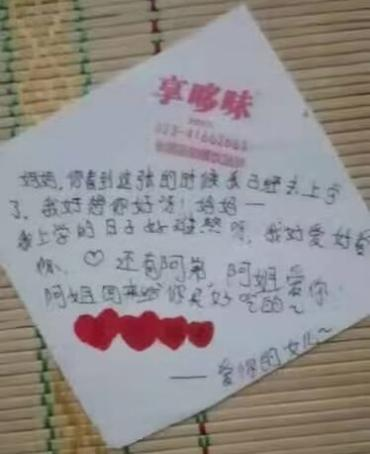 享哆味
023-41662663
妈妈,你看到这张的时候我已经去上学
了,我好想你好呀!妈妈一
我上学的日子好难熬呀,我好爱好爱
你、♡还有阿弟,阿姐爱你
阿姐回来给你买好吃的~
——爱你的女儿~